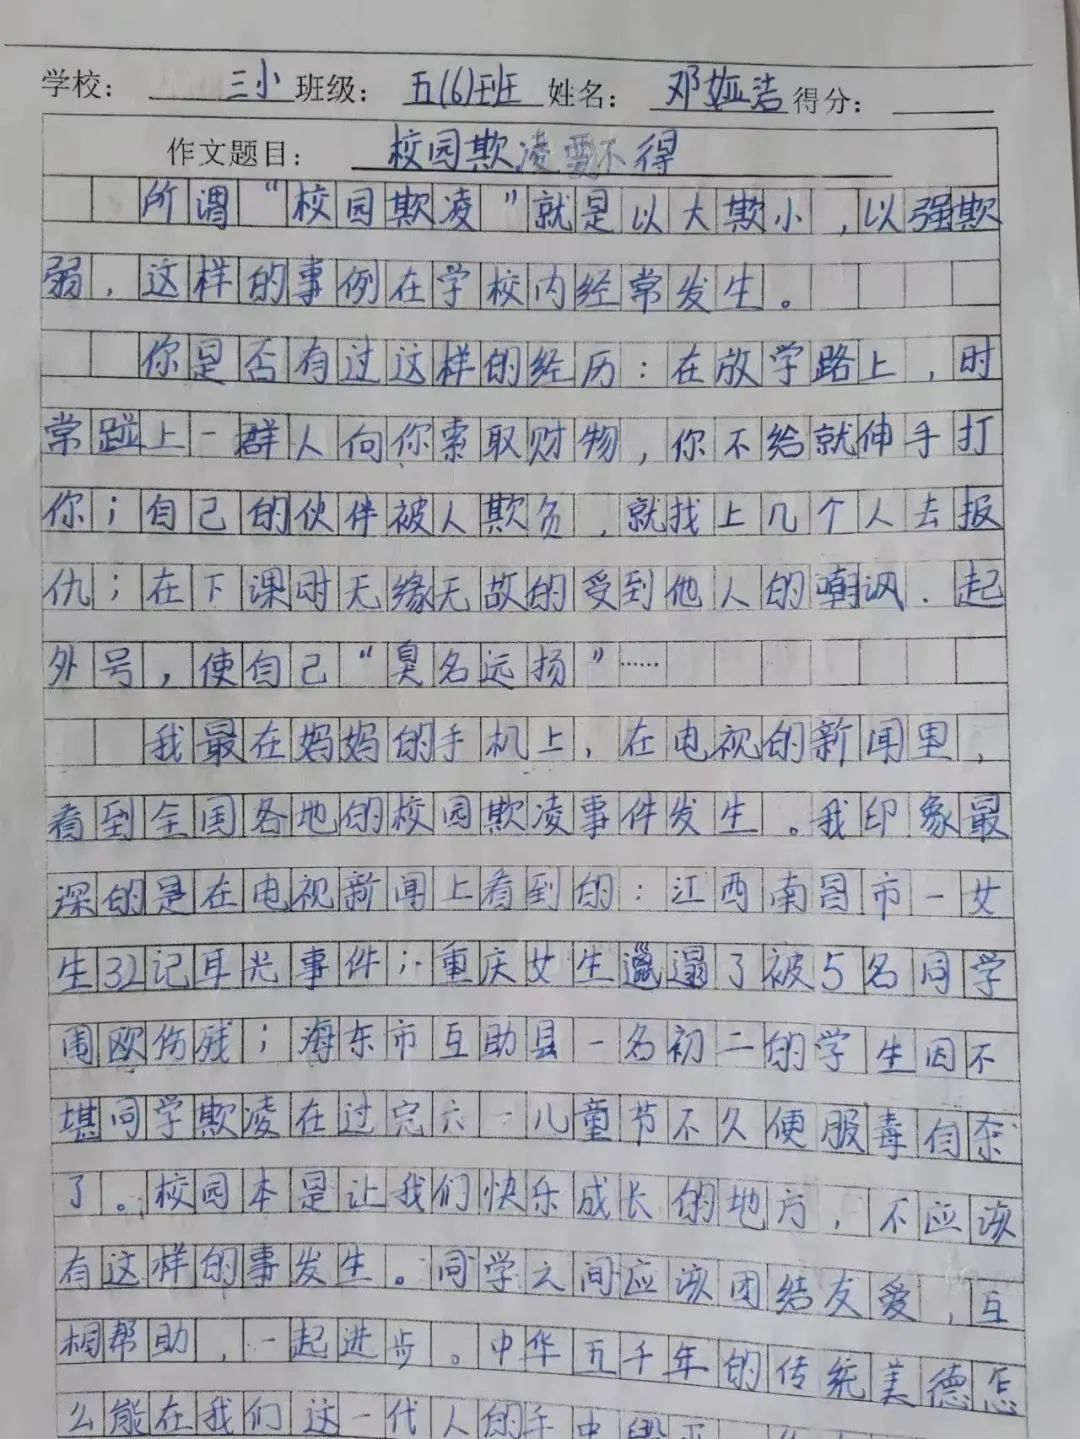 学校： 三小 班级： 五(6)班 姓名： 邓娅洁 得分：
作文题目： 校园欺凌要不得
所谓“校园欺凌”就是以大欺小，以强欺
弱，这样的事例在学校内经常发生。
你是否有过这样的经历：在放学路上，时
常碰上一群人向你索取财物，你不给就伸手打
你；自己的伙伴被人欺负，就找上几个人去报
仇；在下课时无缘无故的受到他人的嘲讽．起
外号，使自己“臭名远扬”……
我最在妈妈的手机上，在电视的新闻里，
看到全国各地的校园欺凌事件发生。我印象最
深的是在电视新闻上看到的：江西南昌市一女
生32记耳光事件；重庆女生邋遢了被5名同学
围欧伤残；海东市互助县一名初二的学生因不
堪同学欺凌在过完六一儿童节不久便服毒自杀
了。校园本是让我们快乐成长的地方，不应该
有这样的事发生。同学之间应该团结友爱，互
相帮助，一起进步。中华五千年的传统美德怎
么能在我们这一代人的手中